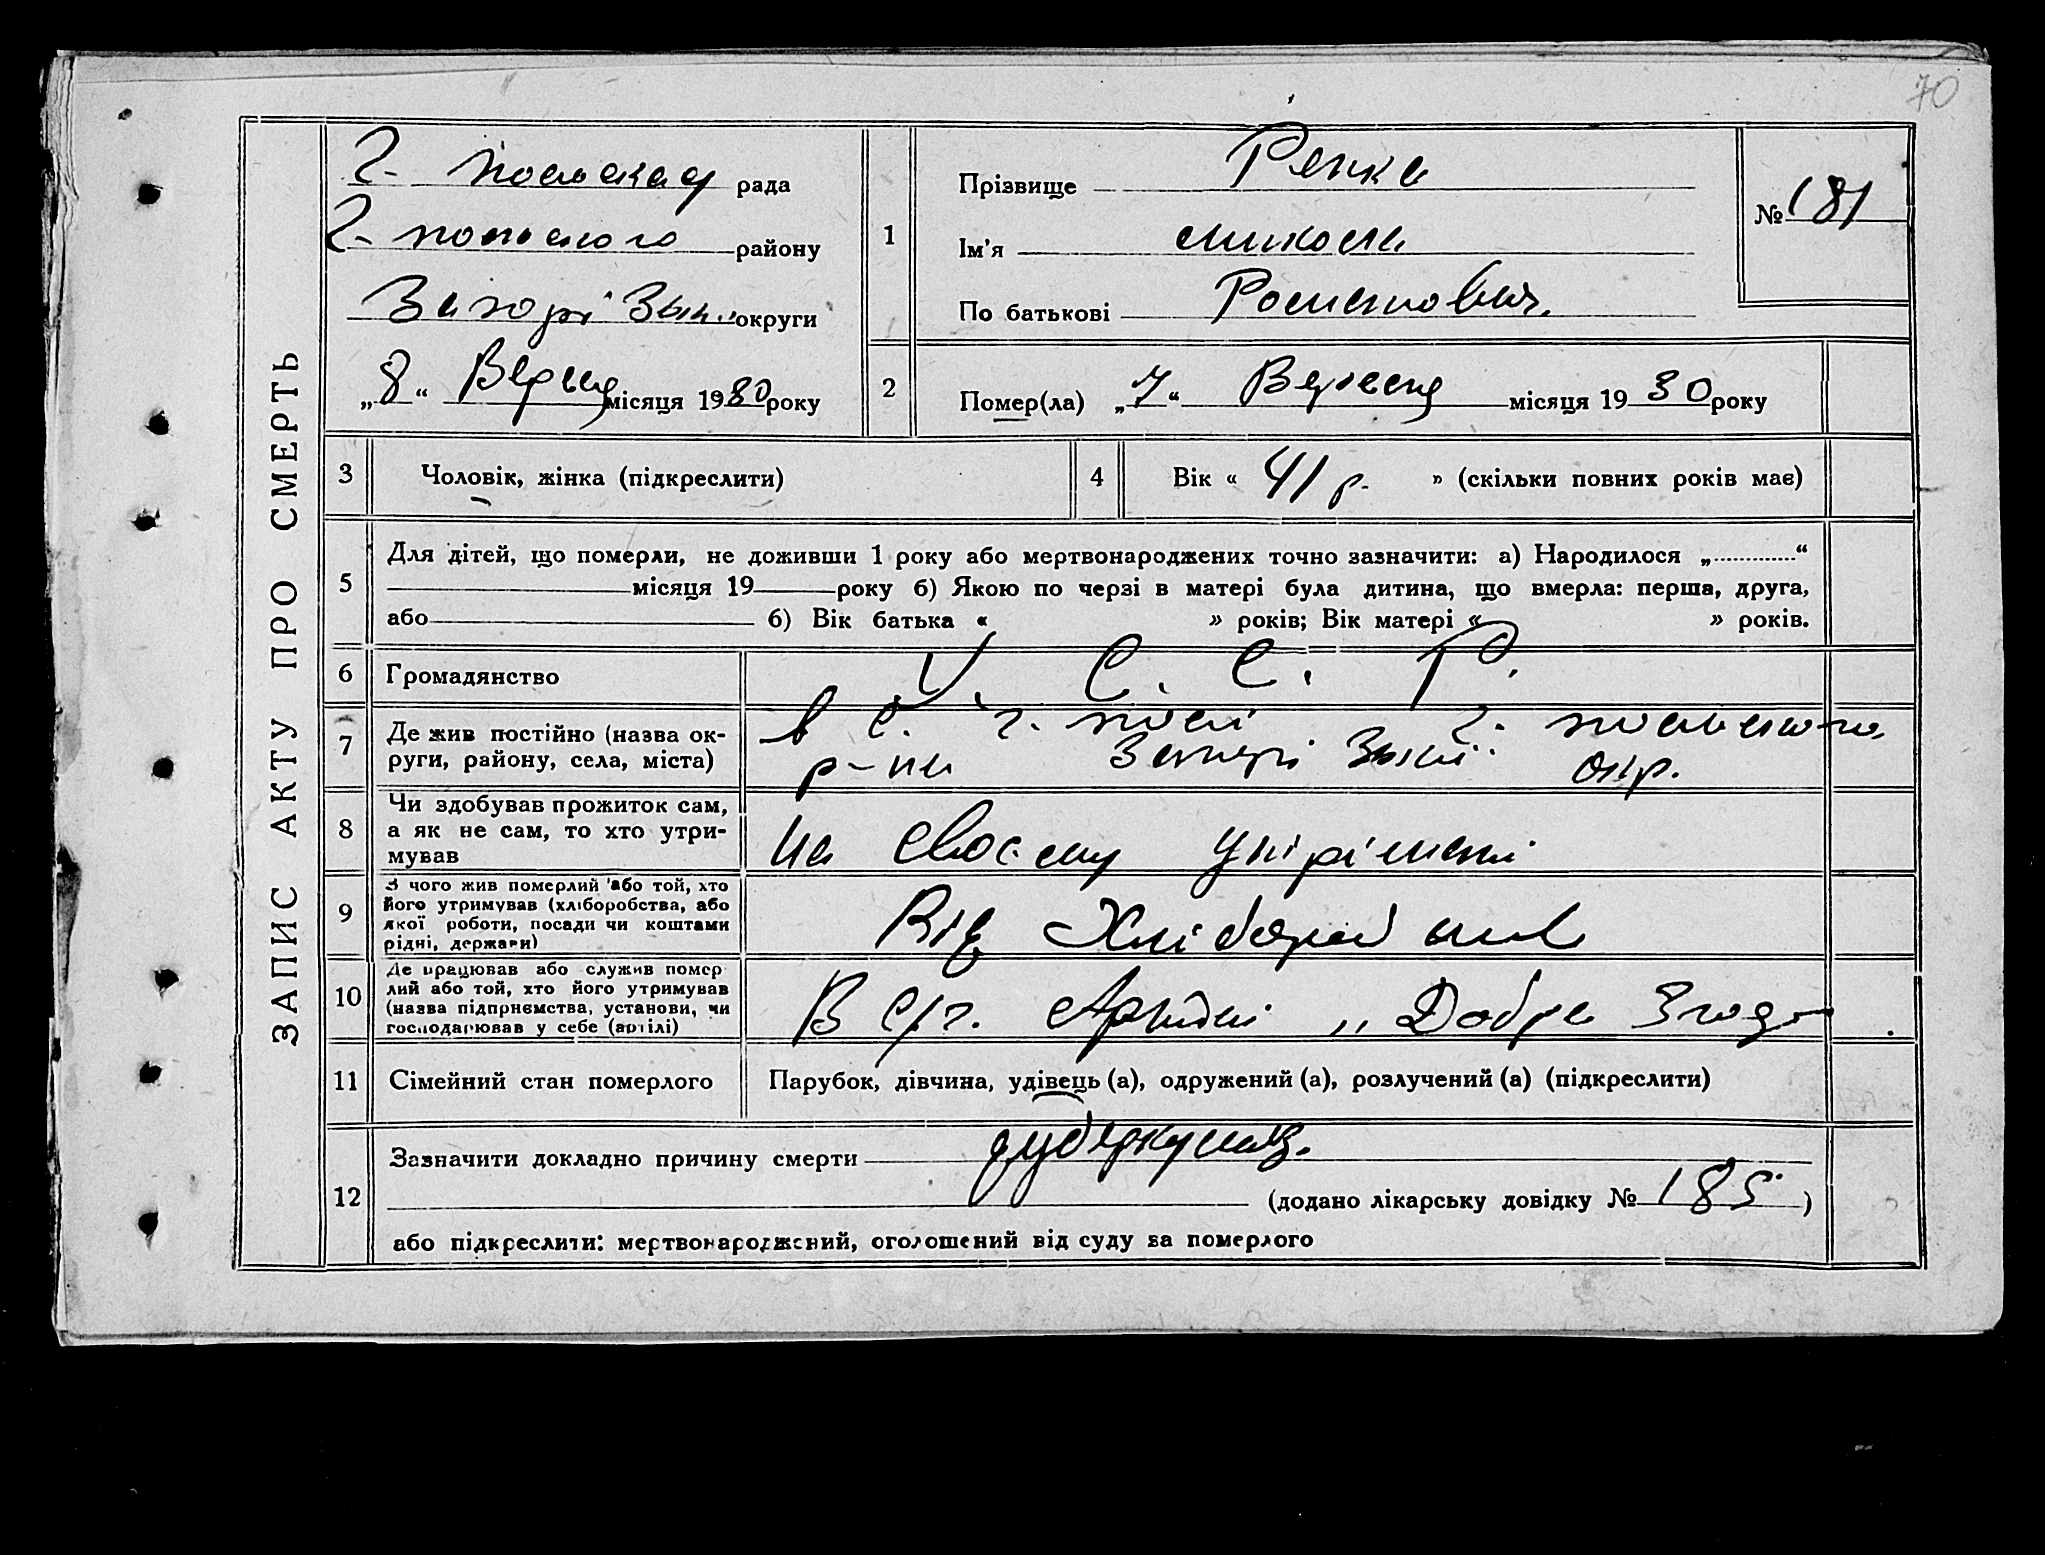 70
ЗАПИС АКТУ ПРО СМЕРТЬ
Г- польская рада
Г- польского району
Запорі зьк. округи
„8“ Верня місяця 1930 року
1
Прізвище Репка
Ім'я Микола
По батькові Романович.
№ 181
2
Помер(ла) „7“ Вересня місяця 1930 року
3 Чоловік, жінка (підкреслити)
4 Вік « 41 р. » (скільки повних років має)
5
Для дітей, що померли, не доживши 1 року або мертвонароджених точно зазначити: а) Народилося „ “
місяця 19 року б) Якою по черзі в матері була дитина, що вмерла: перша, друга,
або б) Вік батька « » років; Вік матері « » років.
6 Громадянство У. С. С. Р.
7
Де жив постійно (назва ок-
руги, району, села, міста)
в с. Г. полі Г. польського
р-на Запорі зької окр.
8
Чи здобував прожиток сам,
а як не сам, то хто утри-
мував
на своєму
9
З чого жив померлий або той, хто
його утримував (хліборобства, або
якої роботи, посади чи коштами
рідні, держави)
Від
10
Де працював або служив помер
лий або той, хто його утримував
(назва підприємства, установи, чи
господарював у себе (артілі)
В с/г. Артілі „Добра Згода
11 Сімейний стан померлого
Парубок, дівчина, удівець (а), одружений (а), розлучений (а) (підкреслити)
12
Зазначити докладно причину смерти туберкульоз.
(додано лікарську довідку № 185)
або підкреслити: мертвонароджений, оголошений від суду за померлого